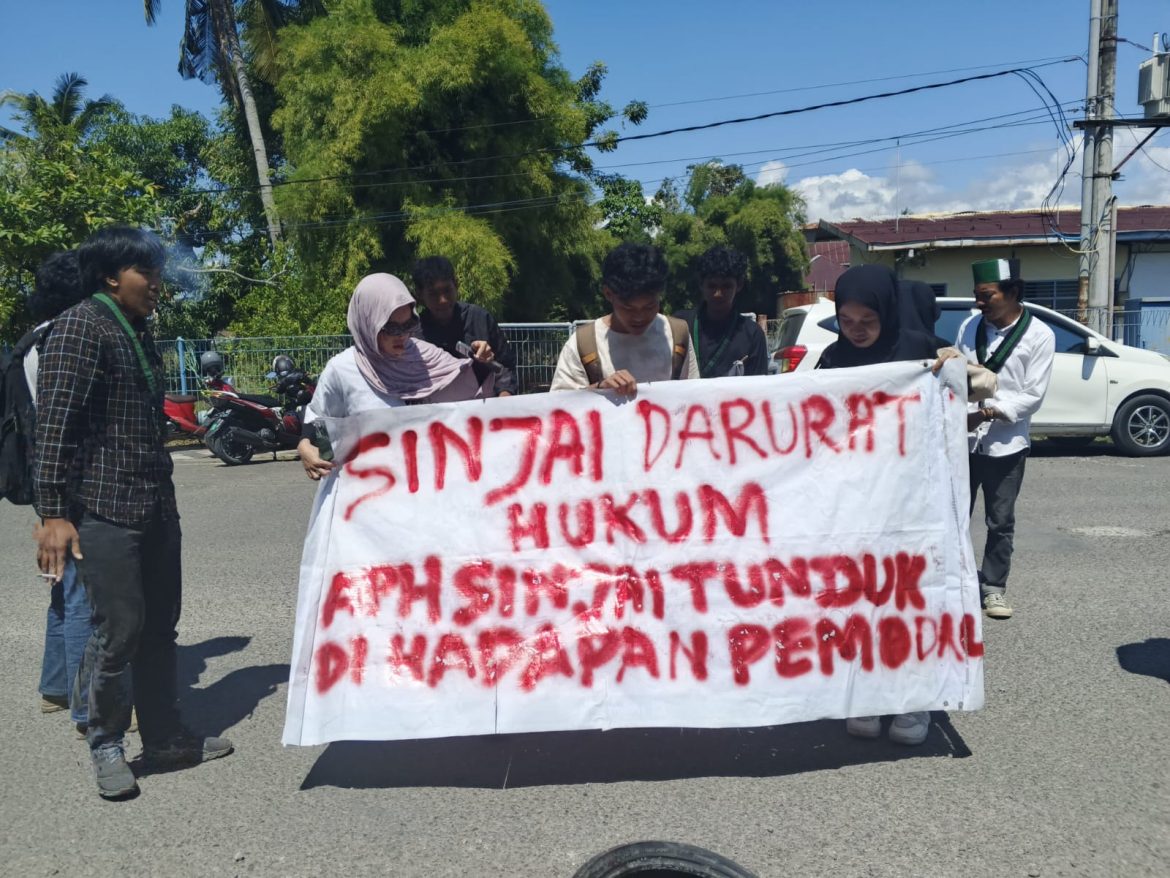 SINJAI DARURAT
HUKUM
APH SINJAI TUNDUK
DI HADAPAN PEMODAL